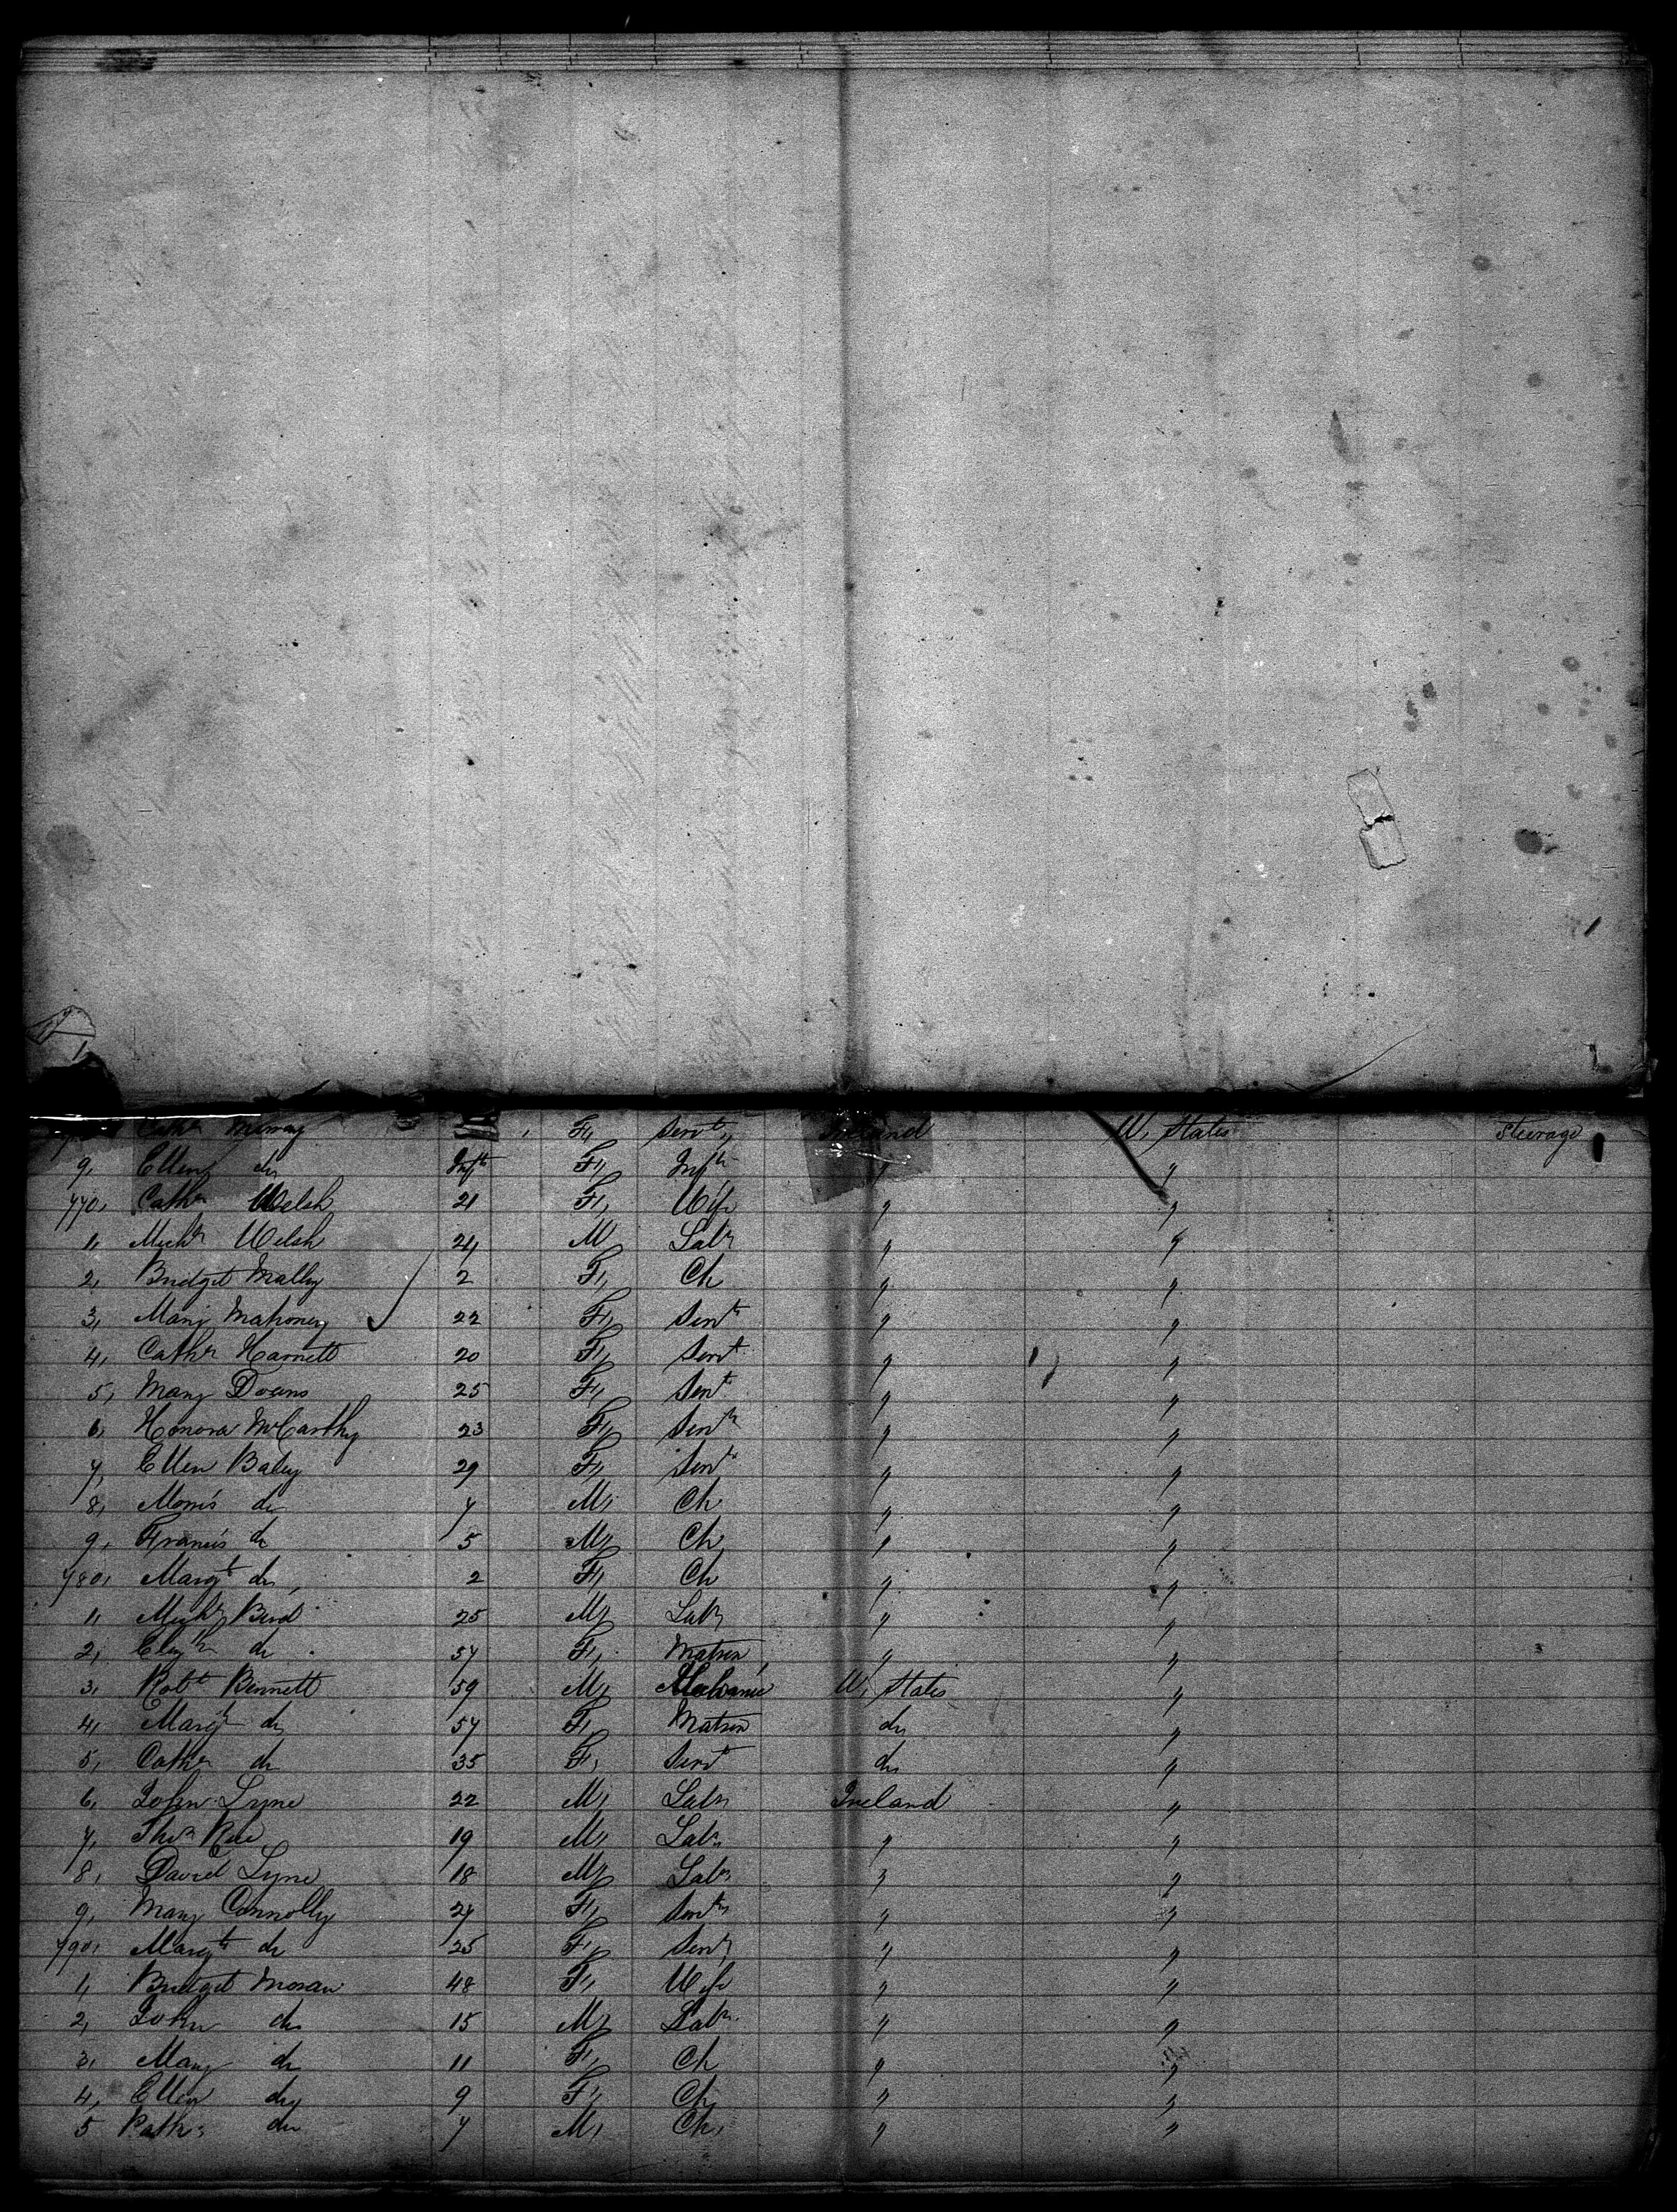 Cathr Murray F, Servt, Ireland U, States Steerage
9, Ellen do Inft F, Inft " "
770, Cathr Welsh 21 F, Wife " "
1, Michl Welsh 24 M Labr " "
2, Bridget Mally 2 F, Ch " "
3, Mary Mahoney 22 F, Servt " "
4, Cathr Harnett 20 F, Servt " "
5, Mary Downs 25 F, Servt " "
6, Honora McCarthy 23 F, Servt " "
7, Ellen Baley 29 F, Servt " "
8, Morris do 7 M, Ch " "
9, Francis do 5 M, Ch " "
780, Margt do, 2 F, Ch " "
1, Michl 25 M, Labr " "
2, do 57 F, Matron, " "
3, Robt Bennett 59 M, Mechanic U, States "
4, Margt do 57 F, Matron do "
5, Cathr do 35 F, Servt do "
6, John Lyne 22 M, Labr Ireland "
7, Thos Rice 19 M, Labr " "
8, David Lyne 18 M, Labr " "
9, Mary Connolly 27 F, Servt " "
790, Margt do 25 F, Servt " "
1, Bridget Moran 48 F, Wife " "
2, John do 15 M, Labr. " "
3, Mary do 11 F, Ch " "
4, Ellen do 9 F, Ch " "
5 Patk: do 7 M, Ch, " "